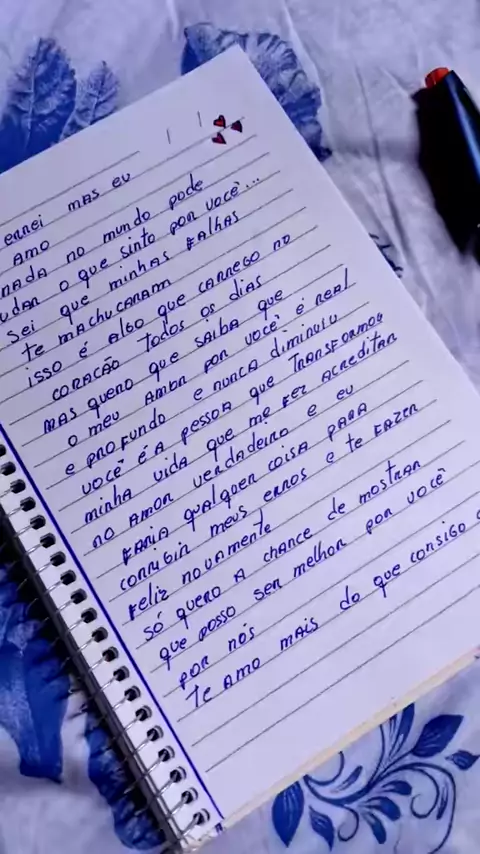 errei mas eu
amo
nada no mundo pode
udar o que sinto por você...
Sei que minhas falhas
te machucaram
isso é algo que carrego no
coração todos os dias
mas quero que saiba que
o meu amor por você é real
e profundo e nunca diminuiu
você é a pessoa que transformou
minha vida que me fez acreditar
no amor verdadeiro e eu
faria qualquer coisa para
corrigir meus erros e te fazer
feliz novamente
só quero a chance de mostrar
que posso ser melhor por você
por nós
te amo mais do que consigo